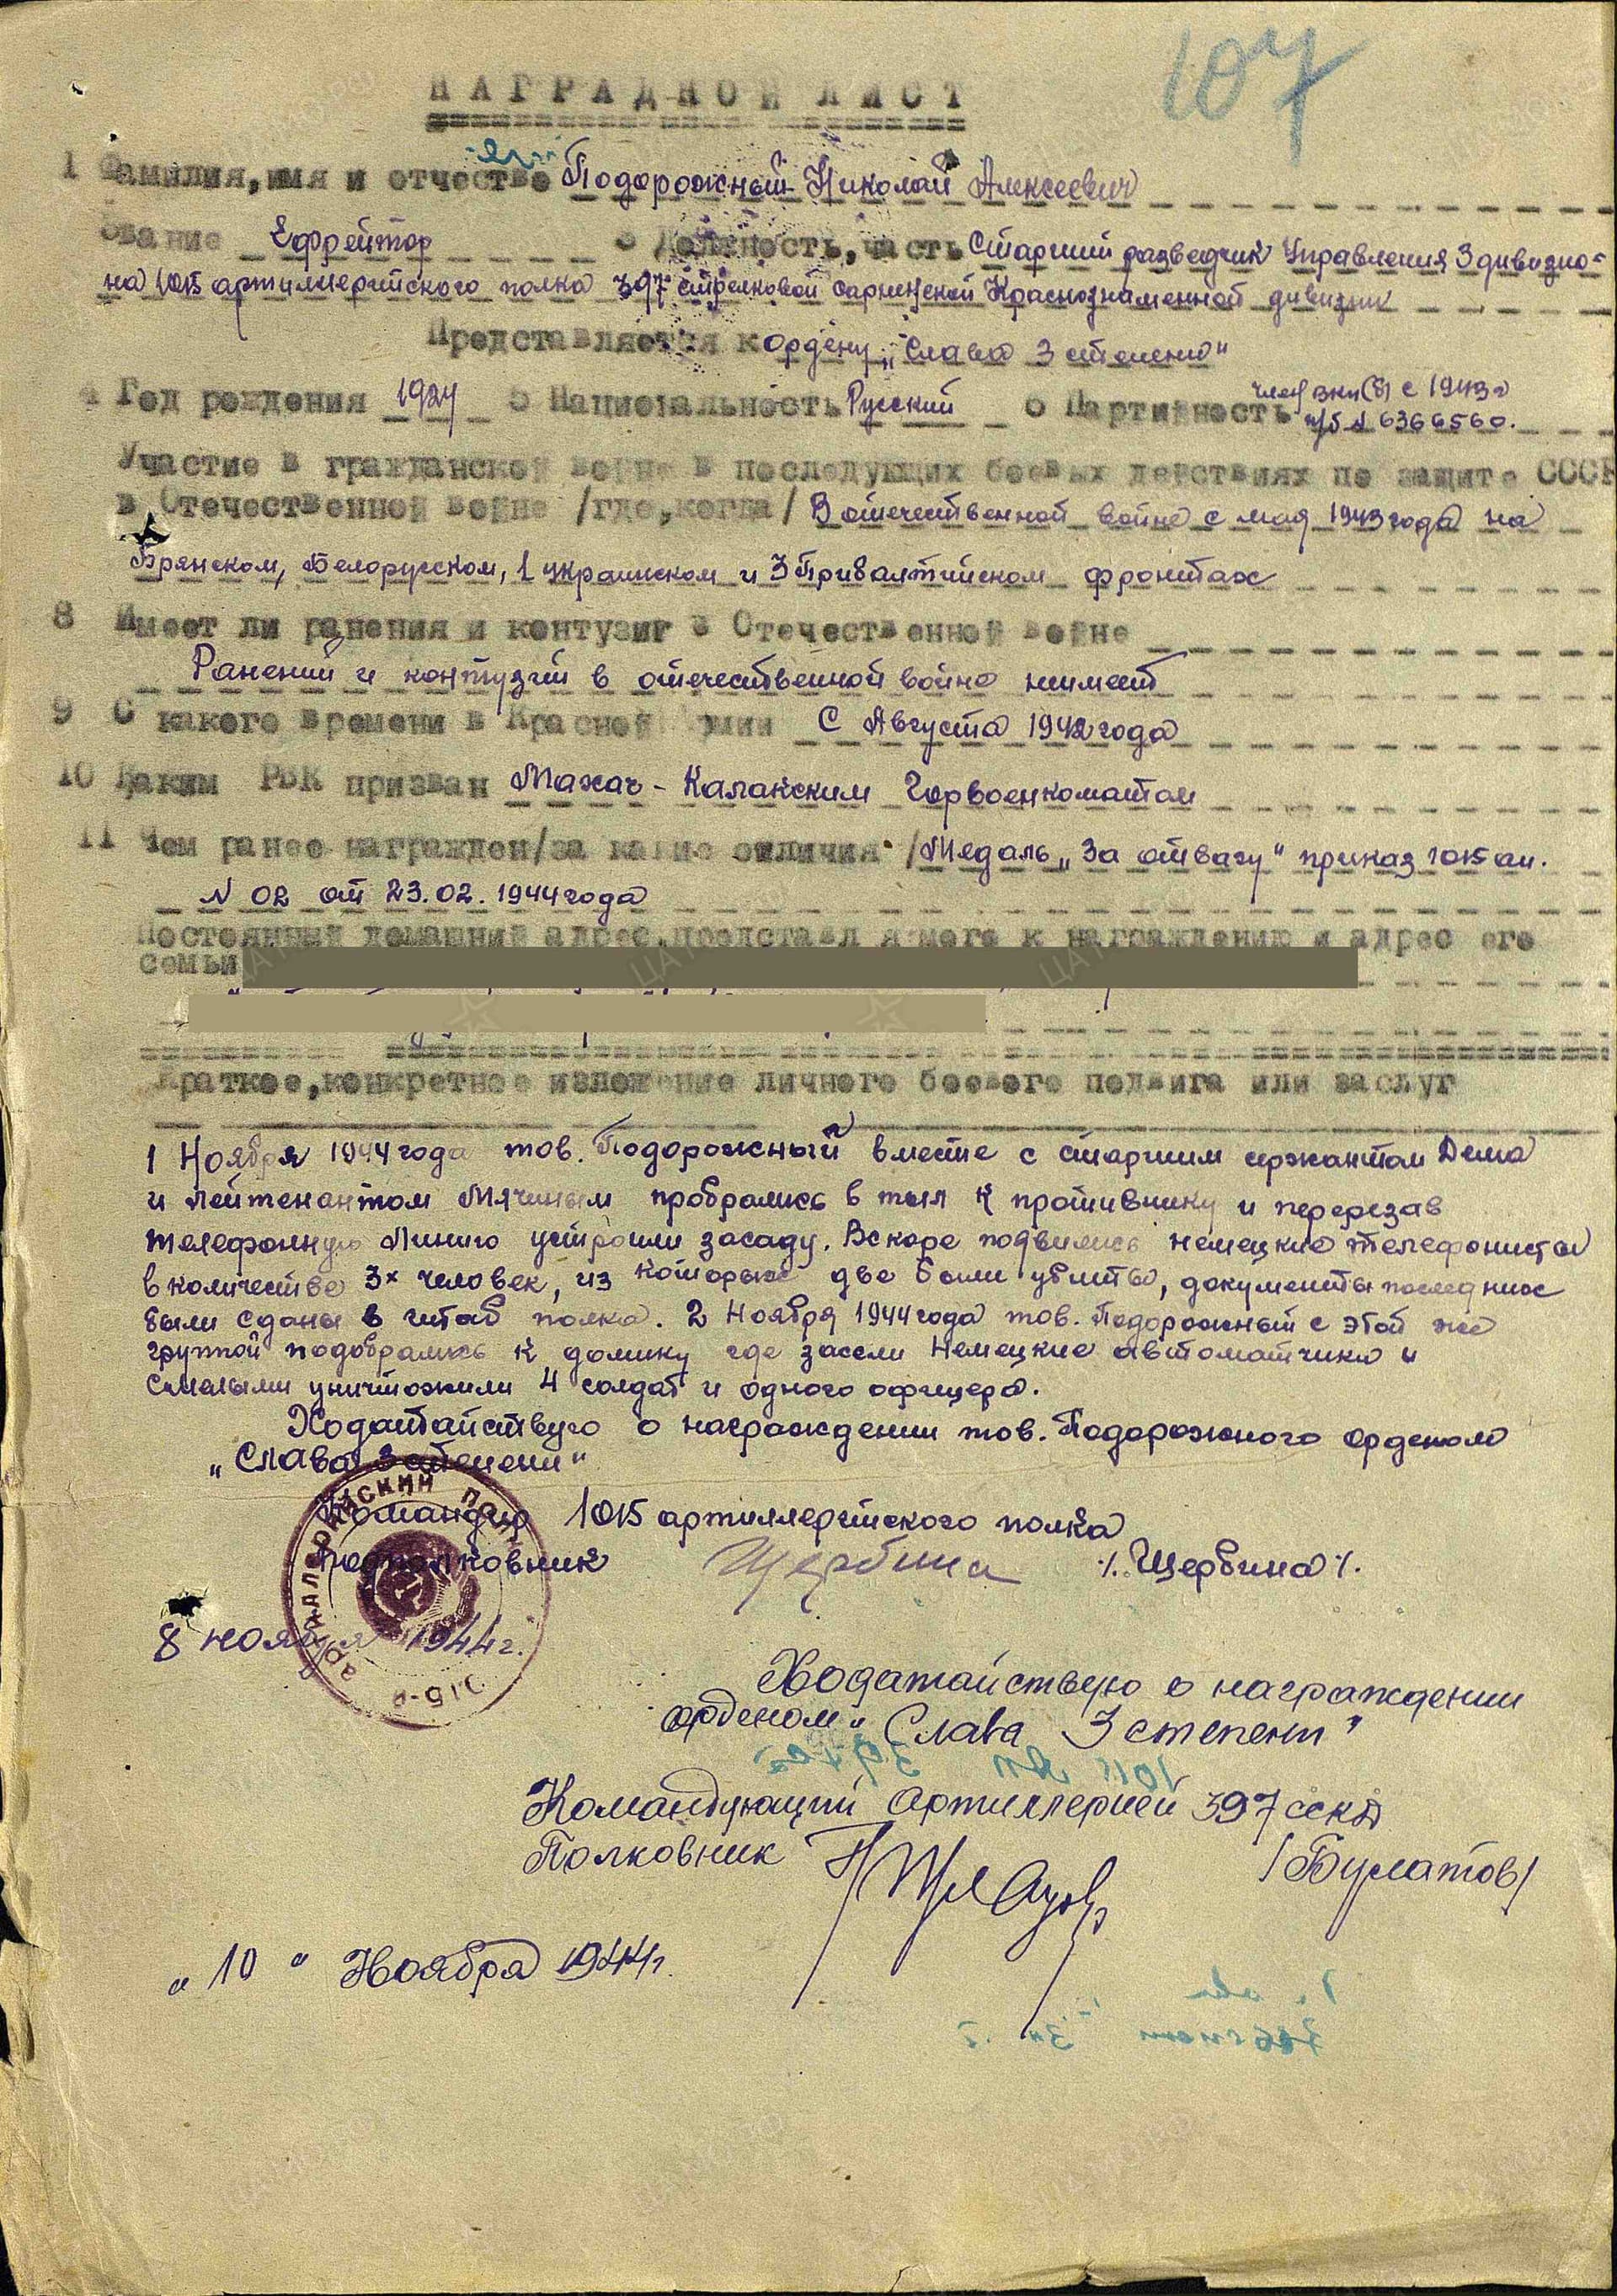 107
НАГРАДНОЙ ЛИСТ
1 Фамилия, имя и отчество Подорожный Николай Алексеевич
Звание Ефрейтор 3 Должность, часть Старший разведчик Управления 3 дивизио-
на 1015 артиллерийского полка 397 стрелковой Сарненской Краснознаменной дивизии
Представляется к ордену „Слава 3 степени"
4 Год рождения 1924 5 Национальность Русский 6 Партийность член ВКП(б) с 1943г
п/б N 6366560.
Участие в гражданской войне в последующих боевых действиях по защите СССР
в Отечественной войне /где, когда/ В отечественной войне с мая 1943 года на
Брянском, Белорусском, 1 украинском и 3 Прибалтийском фронтах
8 Имеет ли ранения и контузии в Отечественной войне
Ранений и контузий в отечественной войне неимеет
9 С какого времени в Красной Армии С Августа 1942 года
10 Каким РВК призван Махач-Калакским Горвоенкоматом
11 Чем ранее награжден/за какие отличия/ Медаль „За отвагу" приказ 1015 ап.
N 02 от 23.02.1944 года
Постоянный домашний адрес, представляемого к награждению и адрес его
семьи
Краткое, конкретное изложение личного боевого подвига или заслуг
1 Ноября 1944 года тов. Подорожный вместе с старшим сержантом Дема
и лейтенантом Мячиным пробрались в тыл к противнику и перерезав
телефонную линию устроили засаду. Вскоре подвились немецкие телефонисты
в количестве 3х человек, из которых две были убиты, документы последних
были сданы в штаб полка. 2 Ноября 1944 года тов. Подорожный с этой же
группой подобрались к домику где засели Немецкие автоматчики и
смелыми уничтожили 4 солдат и одного офицера.
Ходатайствую о награждении тов. Подорожного орденом
„Слава 3 степени"
Командир 1015 артиллерийского полка
Подполковник Щербина /.Щербина/.
8 ноября 1944г.
Ходатайствую о награждении
орденом „Слава 3 степени"
Командующий Артиллерией 397 сскд
Полковник /Булатов/
„10" Ноября 1944г.